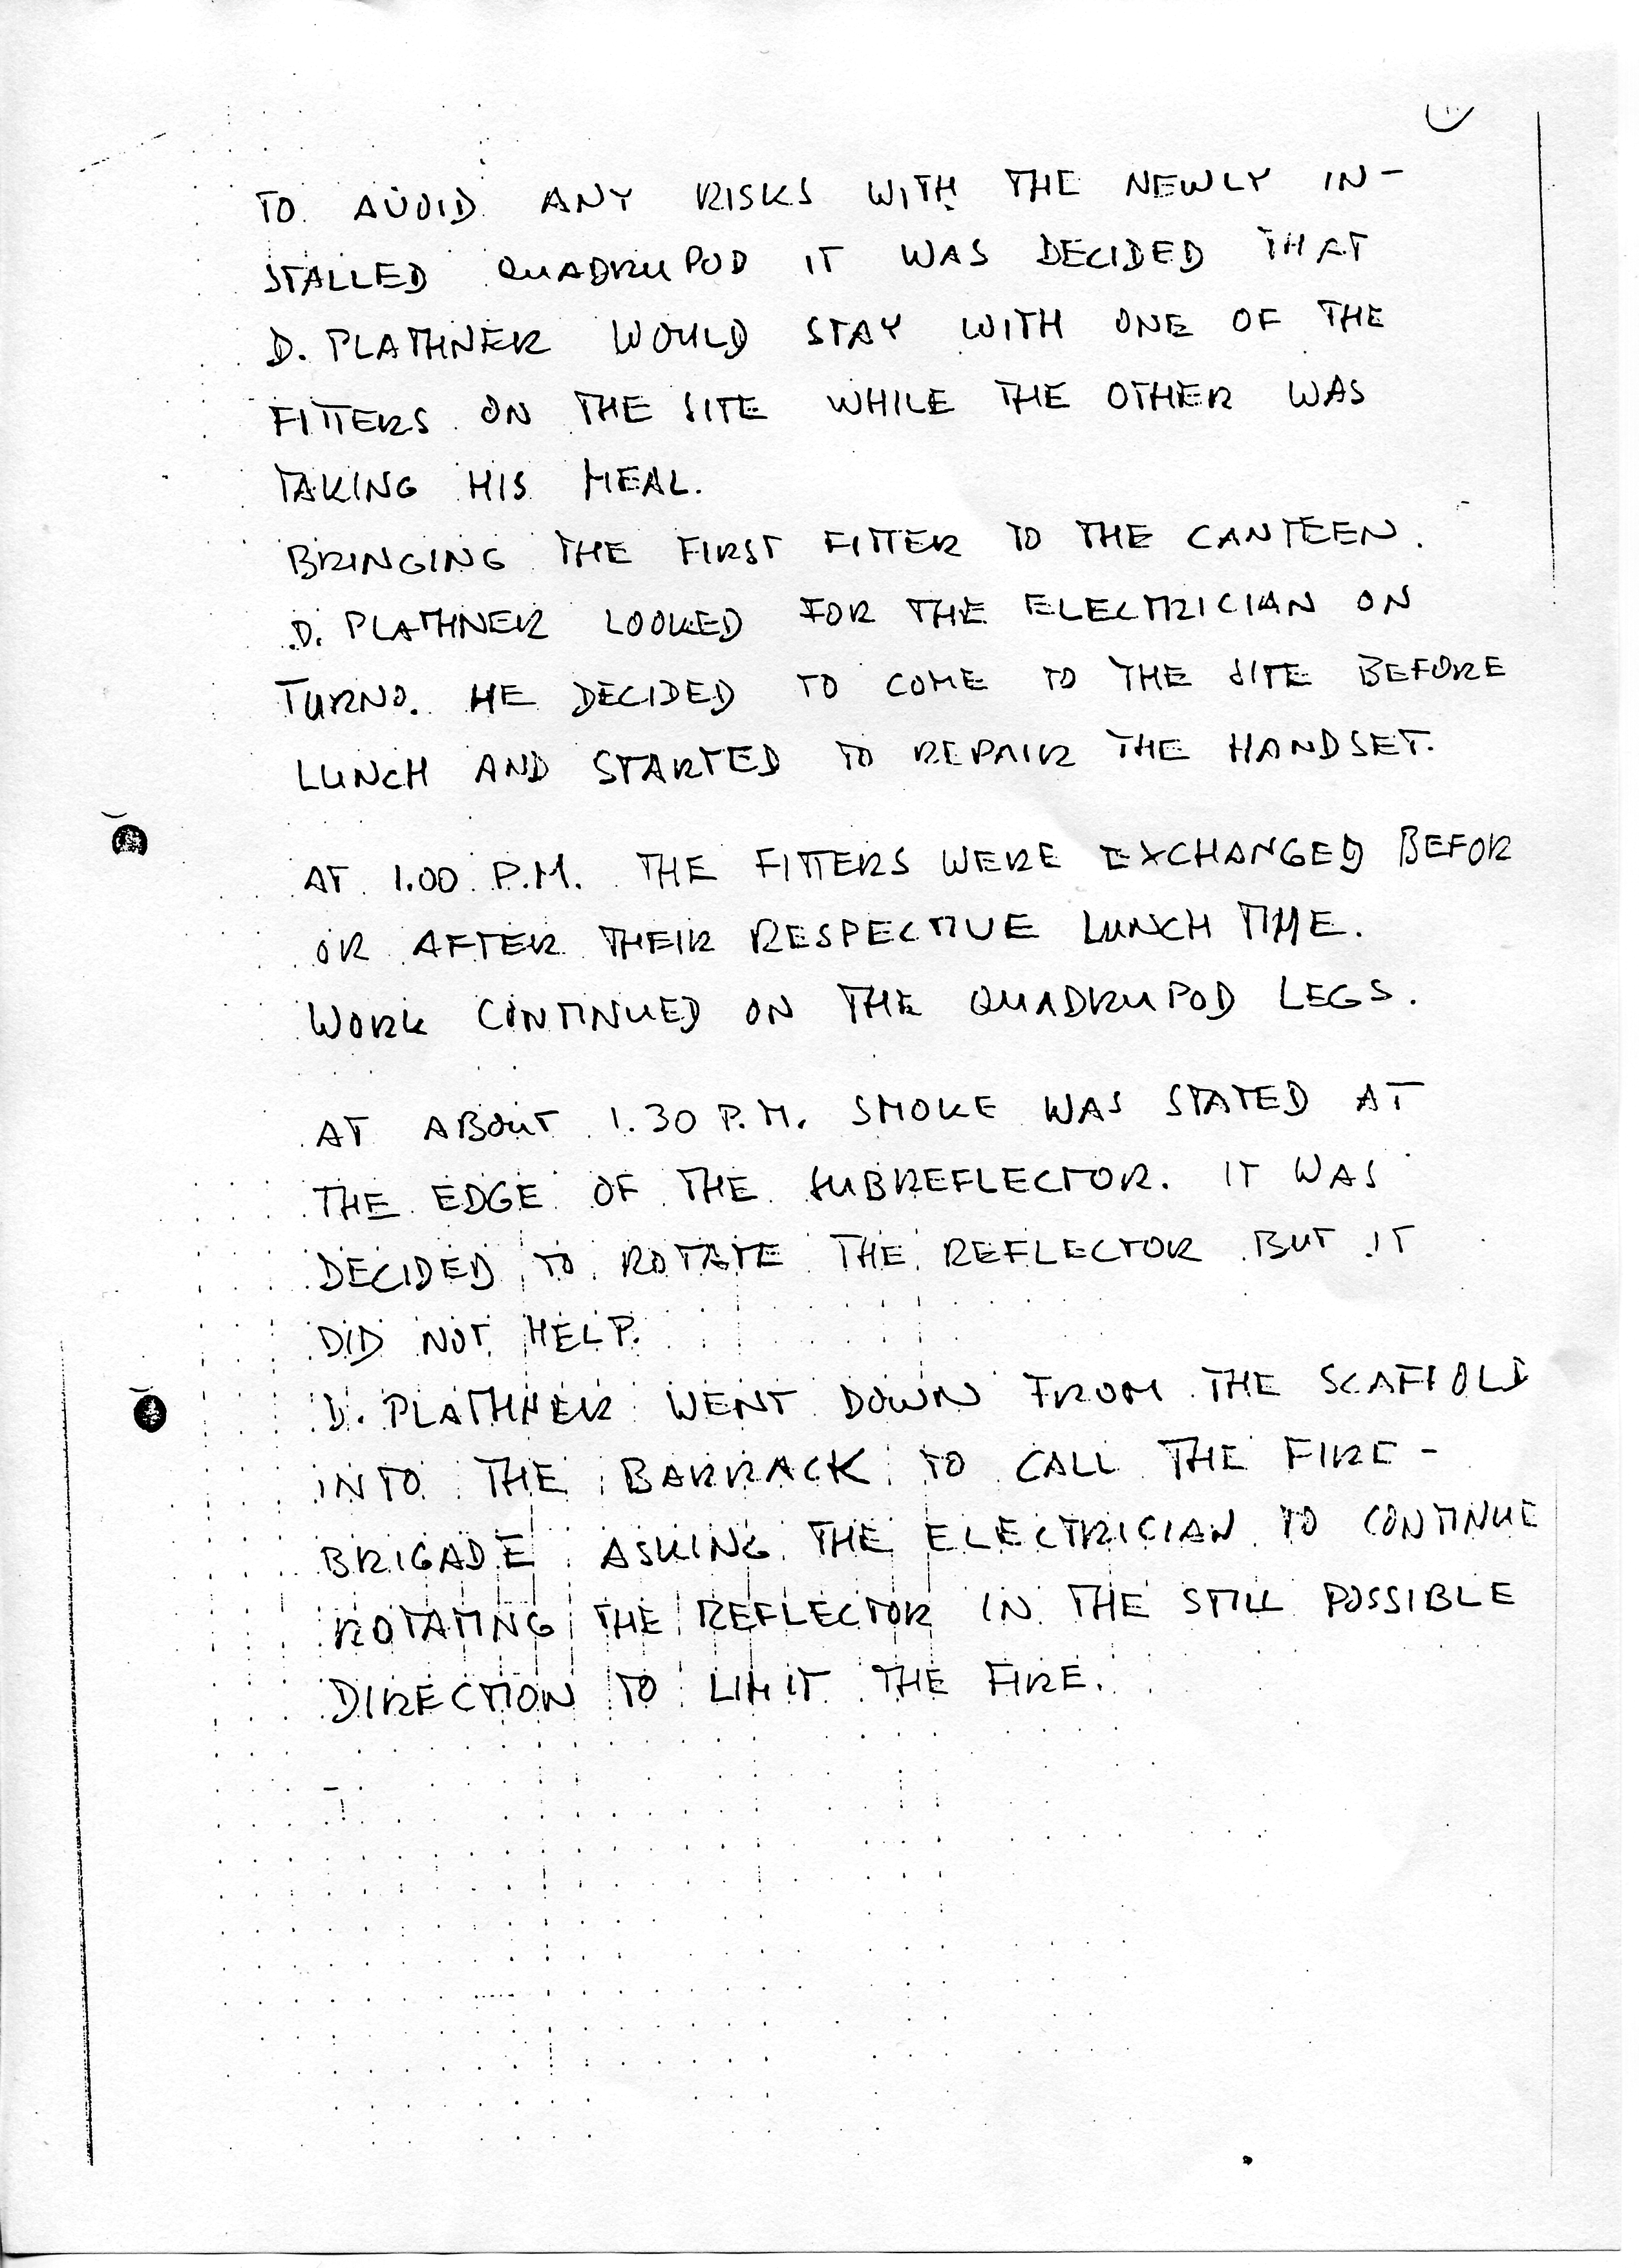 TO AVOID ANY RISKS WITH THE NEWLY IN-
STALLED QUADRUPOD IT WAS DECIDED THAT
D. PLATHNER WOULD STAY WITH ONE OF THE
FITTERS ON THE SITE WHILE THE OTHER WAS
TAKING HIS MEAL.
BRINGING THE FIRST FITTER TO THE CANTEEN.
D. PLATHNER LOOKED FOR THE ELECTRICIAN ON
TURNO. HE DECIDED TO COME TO THE SITE BEFORE
LUNCH AND STARTED TO REPAIR THE HANDSET.
AT 1.00 P.M. THE FITTERS WERE EXCHANGED BEFOR
OR AFTER THEIR RESPECTIVE LUNCH TIME.
WORK CONTINUED ON THE QUADRUPOD LEGS.
AT ABOUT 1.30 P.M. SMOKE WAS STATED AT
THE EDGE OF THE SUBREFLECTOR. IT WAS
DECIDED TO ROTATE THE REFLECTOR BUT IT
DID NOT HELP.
D. PLATHNER WENT DOWN FROM THE SCAFFOLD
INTO THE BARRACK TO CALL THE FIRE-
BRIGADE ASKING THE ELECTRICIAN TO CONTINUE
ROTATING THE REFLECTOR IN THE STILL POSSIBLE
DIRECTION TO LIMIT THE FIRE.